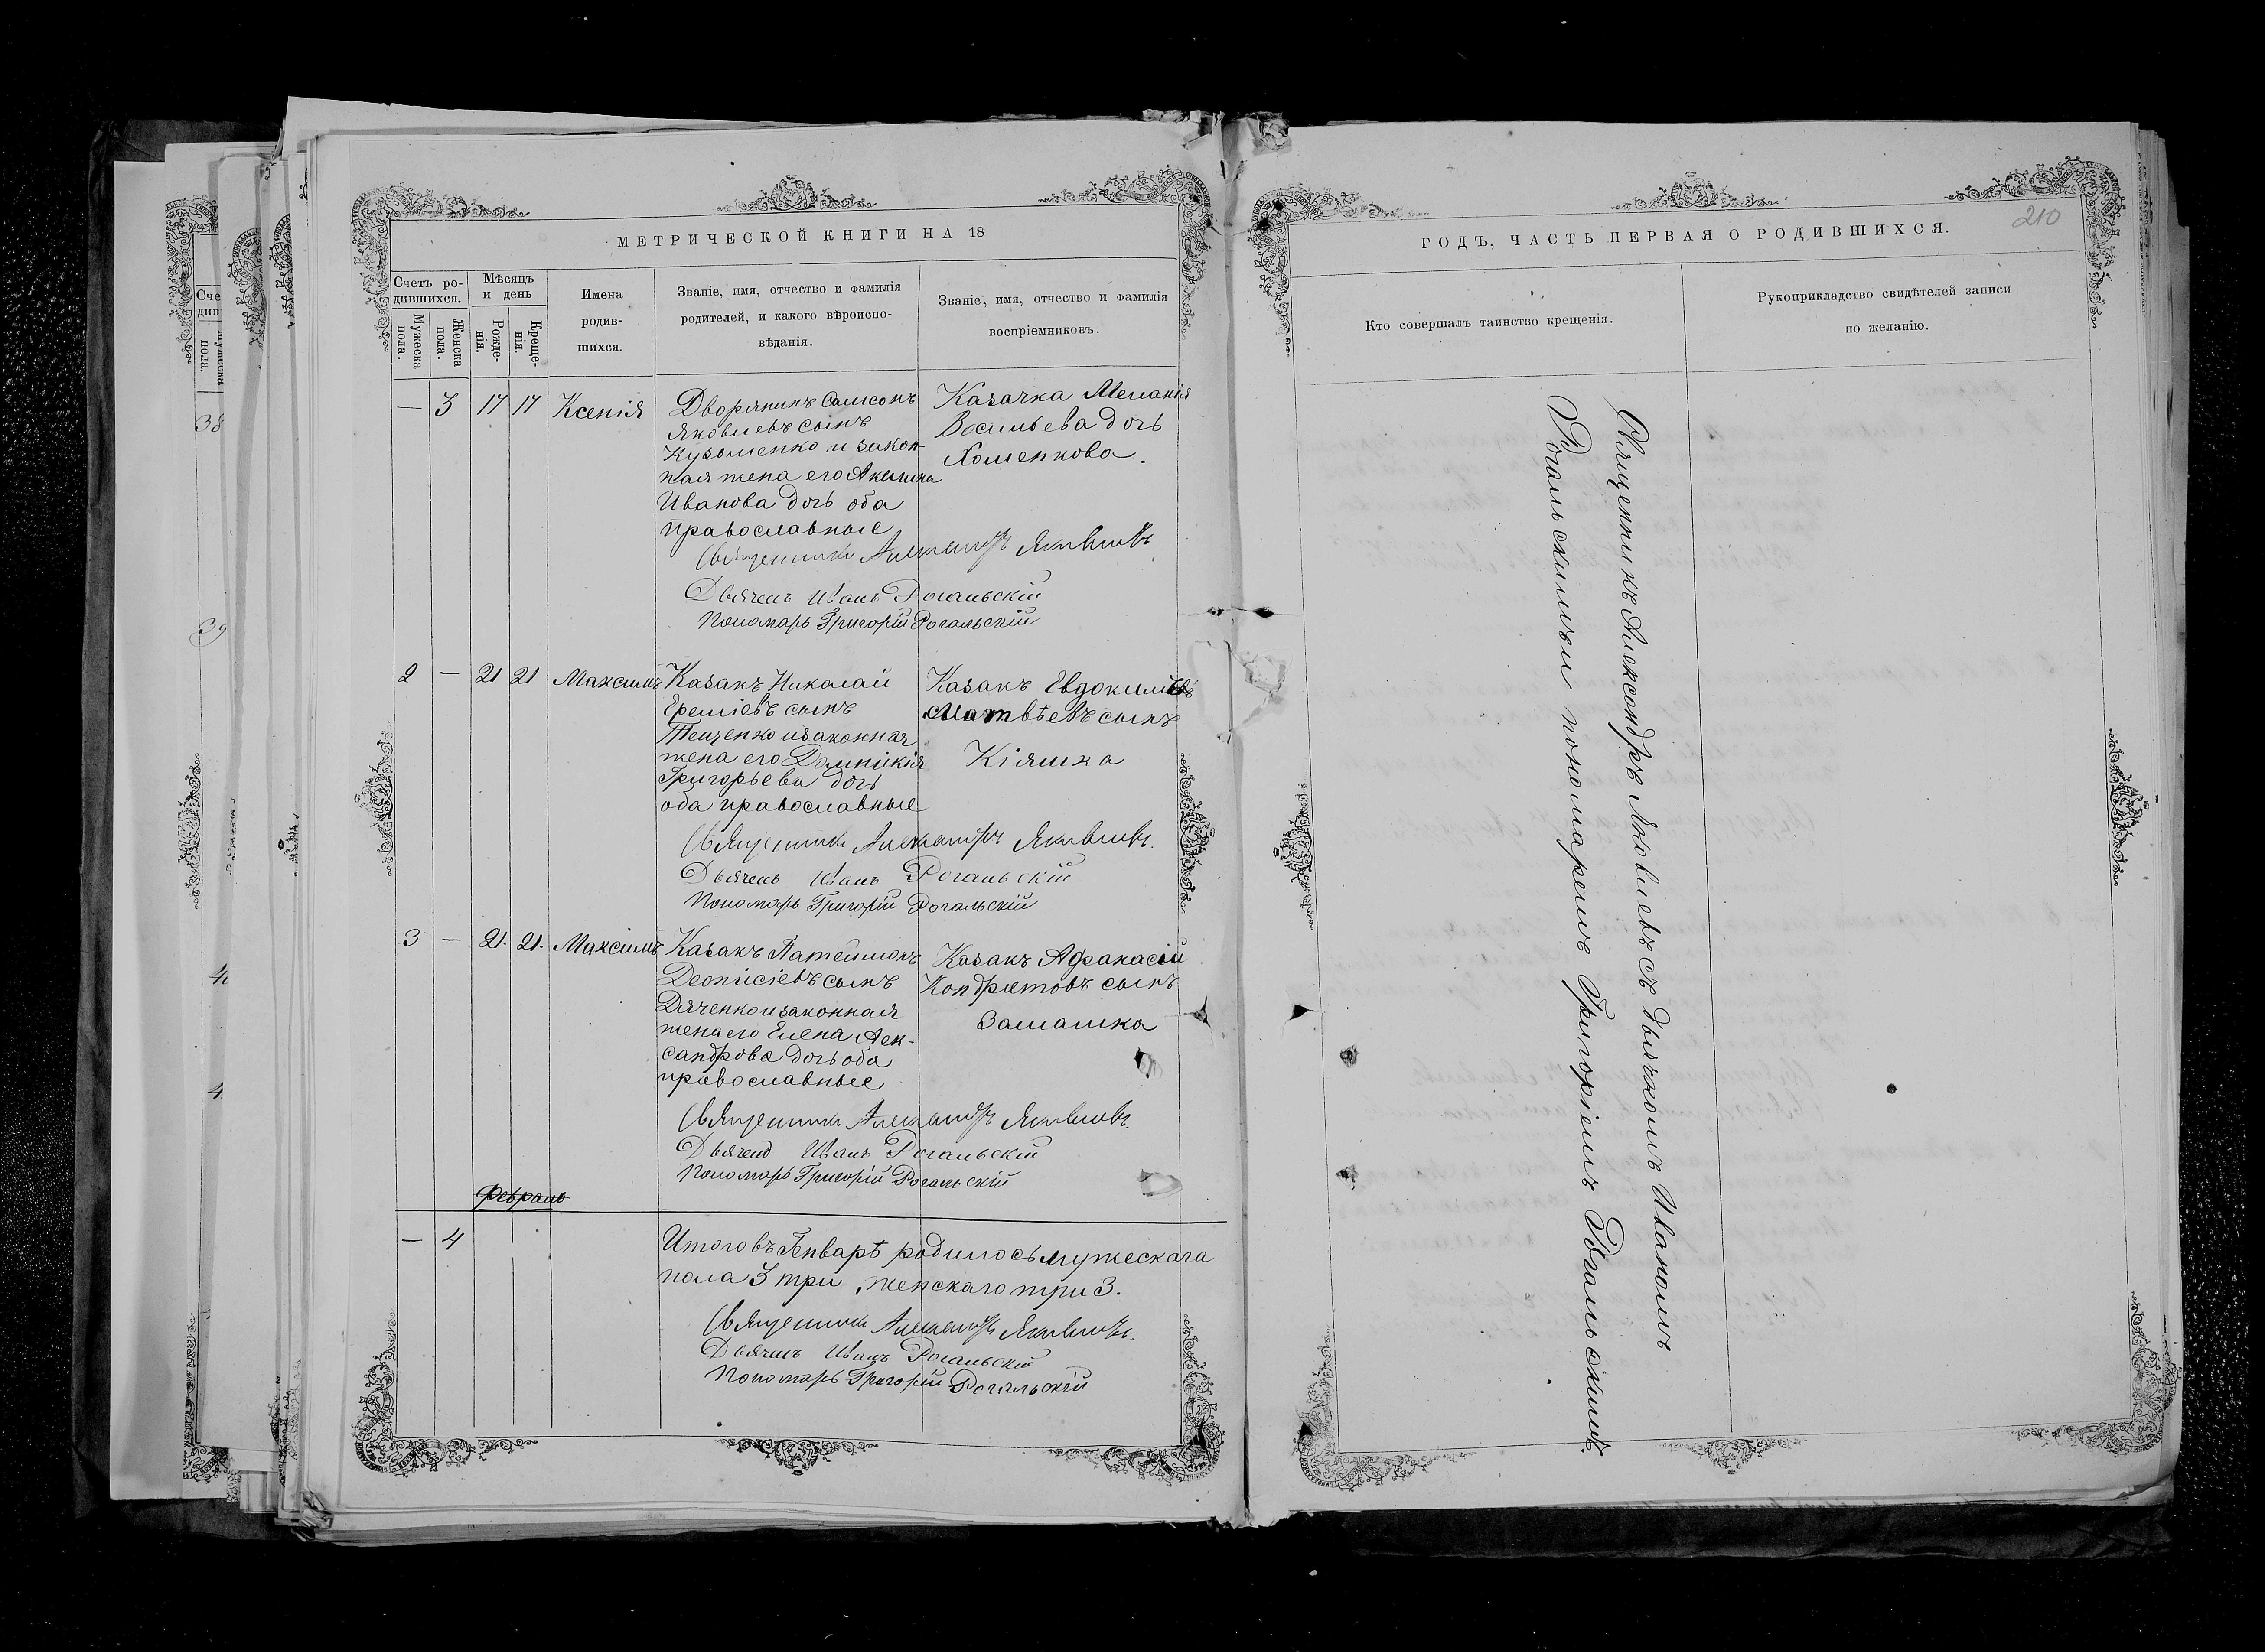 МЕТРИЧЕСКОЙ КНИГИ НА 18
Счетъ ро-
дившихся.
Мужеска
пола.
Женска
пола.
Мѣсяцъ
и день
Рожде-
нія.
Креще-
нія.
Имена
родив-
шихся.
Званіе, имя, отчество и фамилія
родителей, и какого вѣроиспо-
вѣданія.
Званіе, имя, отчество и фамилія
воспріемниковъ.
— 3 17 17 Ксенія
Дворянинъ Самсонъ
Яковлевъ сынъ
Кузьменко и закон-
ная жена его Акилина
Иванова дочь оба
православные
Казачка Меланія
Васильева дочь
Хоменкова.
Священникъ Александръ Яковлевъ
Дьячекъ Иванъ Рогальскій
Пономарь Григорій Рогальскій
2 — 21 21 Максимъ
Казакъ Николай
Ереміевъ сынъ
Тещенко и законная
жена его Домникія
Григорьева дочь
оба православные
Казакъ Евдокимъ
Матвѣевъ сынъ
Кіяшка
Священникъ Александръ Яковлевъ.
Дьячекъ Иванъ Рогальскій
Пономарь Григорій Рогальскій
3 — 21. 21. Максимъ
Казакъ
Деонисіевъ сынъ
Дяченко и законная
жена его Елена Алек-
сандрова дочь оба
православные
Казакъ Афанасій
Кондратовъ сынъ
Замашка
Священникъ Александръ Яковлевъ.
Дьячекъ Иванъ Рогальскій
Пономарь Григорій Рогальскій
Февраль
— 4
Итого въ Генварѣ родилось мужескаго
пола 3 три, женскаго три 3.
Священникъ Александръ Яковлевъ.
Дьячекъ Иванъ Рогальскій
Пономарь Григорій Рогальскій
210
ГОДЪ, ЧАСТЬ ПЕРВАЯ О РОДИВШИХСЯ.
Кто совершалъ таинство крещенія.
Рукоприкладство свидѣтелей записи
по желанію.
Священникъ Александръ Яковлевъ съ дьячкомъ Иваномъ
Рогальскимъ и пономаремъ Григоріемъ Рогальскимъ.
Сче
див
38
39
4
4